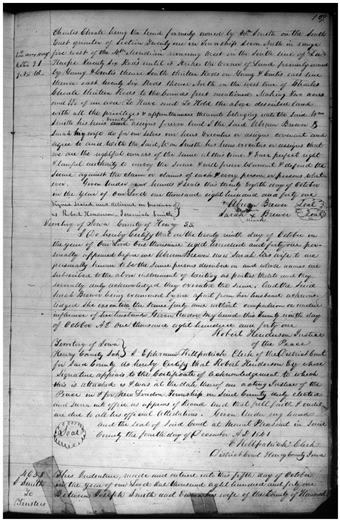 157
Charles Choate being the land formerly owned by Wm Smith on the South
East quarter of Section Twenty one in Township Seven North in range
five west of the 5th Meridian running West on the South line of Lau
thence Twenty Six Rods until it strikes the corner of Land formerly owned
by Young & Coulter thence South thirteen Rods on Young & Coulters East line
thence East twenty six Rods thence North on the West line of Charles
Choate thirteen Rods to the bounds first mentioned Making two acres
and of an acre To Have and To Hold the above described land
with all the privileges & appertenances thereunto belonging unto the Said Wm
Smith his heirs and assigns forever And I the Said Abram Brewer &
Sarah his wife do for our selves our heirs Executors or assigns covenant and
agree to and with the Said Wm Smith his heirs executors or assigns that
we are the rightful owners of the same at this time & have perfect right
& lawful authority to convey the Same & will forever Warrant & defend the
Same against the claim or claims of each & every person or persons whatso
ever. Given under our hands & seals this twenty Eighth day of October
in the year of our Lord one thousand eight hundred and forty one
Signed Sealed and delivered in presence of
Abram Brewer Seal
Robert Henderson, Jeremiah Smith
Sarah Brewer Seal
Territory of Iowa County of Henry SS
I Do hereby Certify that on the twenty ninth day of October in
the year of Our Lord One thousand eight hundred and forty one per-
sonally appeared before me Abram Brewer and Sarah his wife to me
personally known to be the same persons described in and whose names are
Subscribed to the above instrument of writing as parties thereto and they
severally duly acknowledged they executed the same. And the Said
Sarah Brewer being examined by me apart from her husband acknow-
ledged she executed the same freely and without compulsion or undue
influence of her husband Given under my hand this twenty ninth day
of October A.D. one thousand eight hundred and forty one
Robert Henderson Justice
of the Peace
Territory of Iowa
Henry County Sct I Ephraim Killpatrick Clerk of the District Court
for Said County do hereby Certify that Robert Henderson by whose
Signature appears to the Certificate of Acknowledgement to which
this is attached is & was at the date thereof an acting Justice of the
Peace in & for New London Township in Said County duly elected
and sworn into office as appears of Record And that full faith & credit
are due to all his official Attestations. Given Under my hand
and the seal of Said Court at Mount Pleasant in Said
County the fourth day of December A.D. 1841
E Killpatrick Clerk
District Court Henry County Iowa
Seal
J Smith
To
Trustees
This Indenture, made and entered into this fifth day of October
in the year of our Lord One thousand eight hundred and forty one
Between Joseph Smith and Emma his wife of the County of Hancock